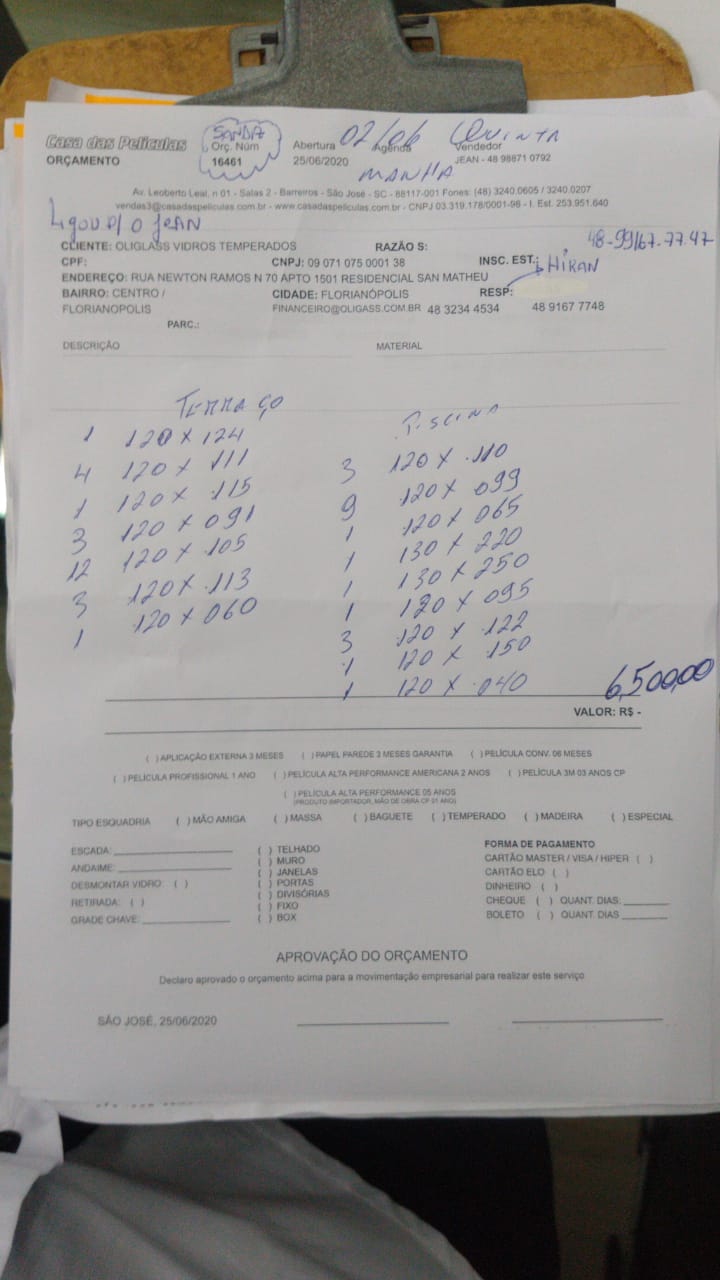 Casa das Películas
ORÇAMENTO
SANDRA
Orç. Núm
16461
Abertura
25/06/2020
02/06
Agenda
MANHA
QUINTA
Vendedor
JEAN - 48 98871 0792
Av. Leoberto Leal, n 01 - Salas 2 - Barreiros - São José - SC - 88117-001 Fones: (48) 3240.0605 / 3240.0207
vendas3@casadaspeliculas.com.br - www.casadaspeliculas.com.br - CNPJ 03.319.178/0001-96 - I. Est. 253.951.640
Ligou p/ o Jean
48-99167.77.47
CLIENTE: OLIGLASS VIDROS TEMPERADOS RAZÃO S:
CPF: CNPJ: 09 071 075 0001 38 INSC. EST.: HIRAN
ENDEREÇO: RUA NEWTON RAMOS N 70 APTO 1501 RESIDENCIAL SAN MATHEU
BAIRRO: CENTRO / CIDADE: FLORIANÓPOLIS RESP:
FLORIANOPOLIS FINANCEIRO@OLIGASS.COM.BR 48 3234 4534 48 9167 7748
PARC.:
DESCRIÇÃO MATERIAL
TERRAÇO
1 120 X 124
4 120 X .111
1 120 X .115
3 120 X 091
12 120 X .105
3 .120 X .113
1 .120 X 060
Piscina
3 120 X .110
9 120 X 099
1 120 X 065
1 130 X 220
1 130 X 250
1 120 X 095
3 .120 X .122
.1 120 X .150
1 120 X .040
6,500,00
VALOR: R$ -
( ) APLICAÇÃO EXTERNA 3 MESES ( ) PAPEL PAREDE 3 MESES GARANTIA ( ) PELÍCULA CONV. 06 MESES
( ) PELÍCULA PROFISSIONAL 1 ANO ( ) PELÍCULA ALTA PERFORMANCE AMERICANA 2 ANOS ( ) PELÍCULA 3M 03 ANOS CP
( ) PELÍCULA ALTA PERFORMANCE 05 ANOS
(PRODUTO IMPORTADOR, MÃO DE OBRA CP 01 ANO)
TIPO ESQUADRIA ( ) MÃO AMIGA ( ) MASSA ( ) BAGUETE ( ) TEMPERADO ( ) MADEIRA ( ) ESPECIAL
ESCADA:
ANDAIME:
DESMONTAR VIDRO: ( )
RETIRADA: ( )
GRADE CHAVE:
( ) TELHADO
( ) MURO
( ) JANELAS
( ) PORTAS
( ) DIVISÓRIAS
( ) FIXO
( ) BOX
FORMA DE PAGAMENTO
CARTÃO MASTER / VISA / HIPER ( )
CARTÃO ELO ( )
DINHEIRO ( )
CHEQUE ( ) QUANT. DIAS:
BOLETO ( ) QUANT. DIAS
APROVAÇÃO DO ORÇAMENTO
Declaro aprovado o orçamento acima para a movimentação empresarial para realizar este serviço
SÃO JOSÉ, 25/06/2020